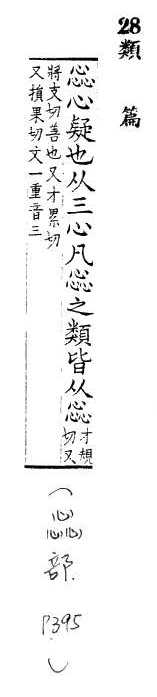 28類篇
惢心疑也从三心凡惢之類皆从惢才規
切又
將支切善也又才累切
又損果切文一重音三
(惢部 P395)